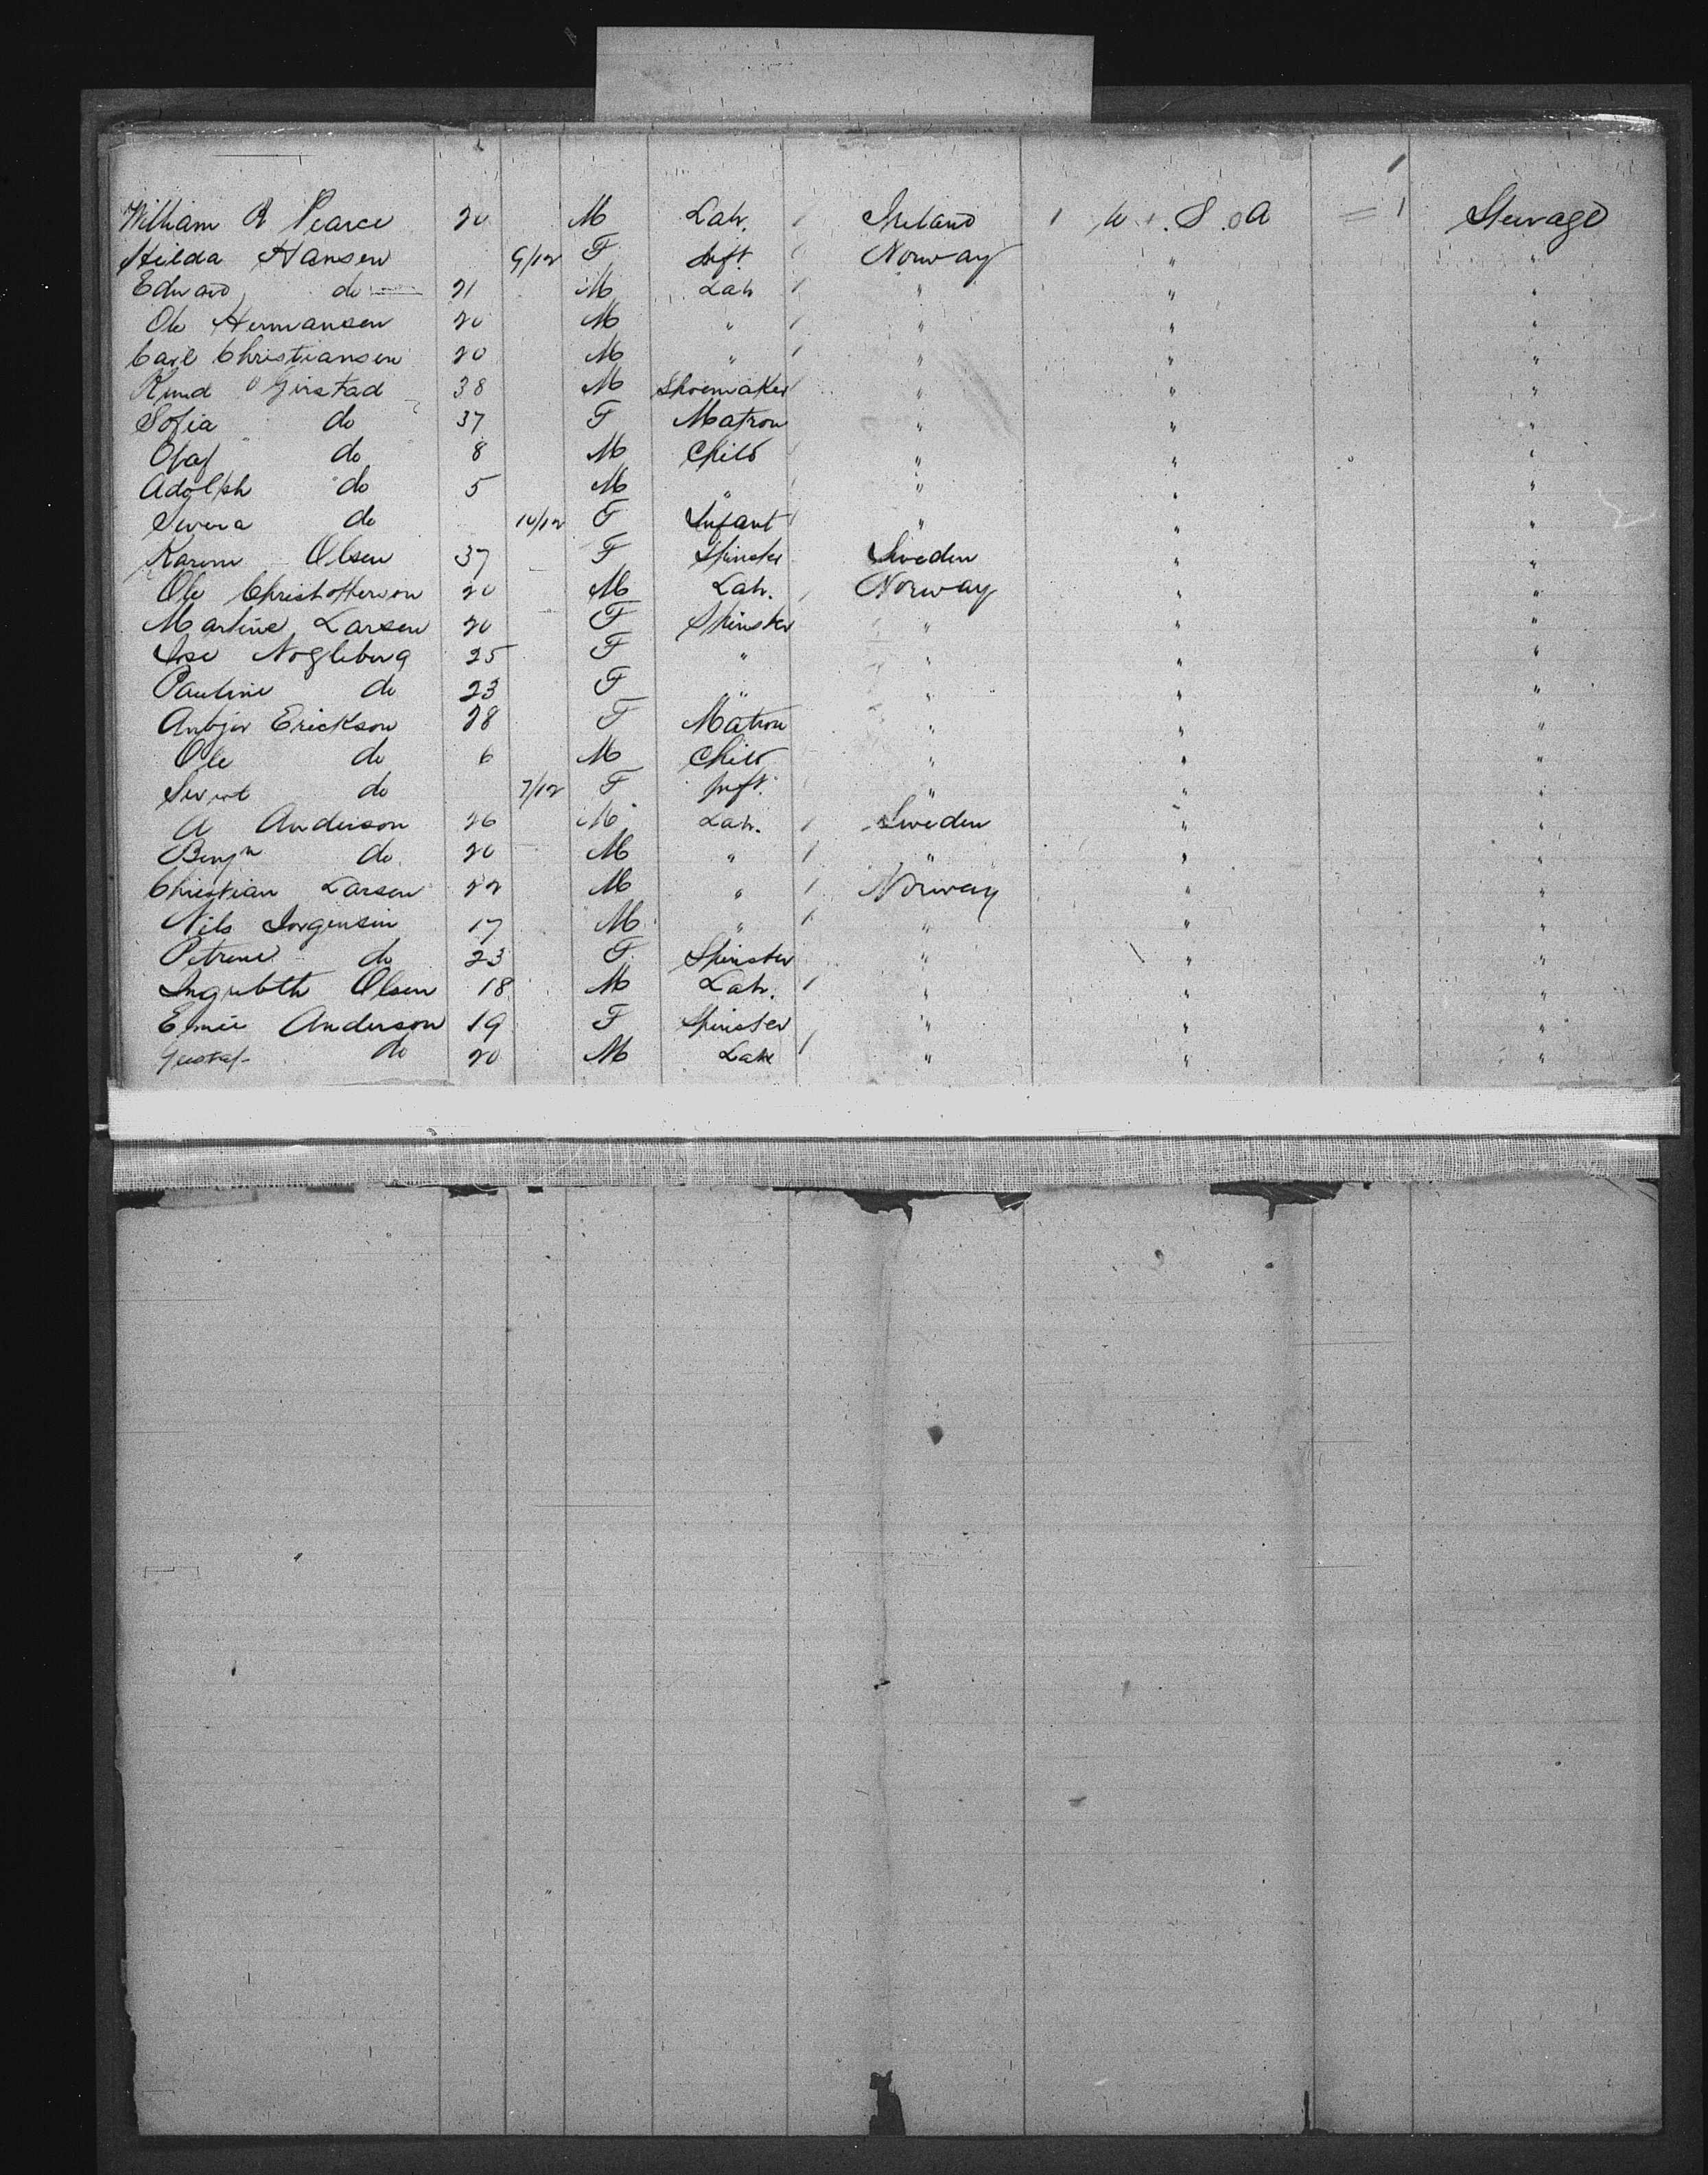 William R Pearce 20 M Lab. Ireland U.S.A Steerage
Hilda Hansen 9/12 F Inft. Norway "
Edward do 21 M Lab " " "
Ole Hermansen 20 M " " " "
Carl Christiansen 20 M " " " "
Knud Girstad 38 M Shoemaker " " "
Sofia do 37 F Matron " " "
Olaf do 8 M Child " " "
Adolph do 5 M " " " "
do 10/12 F Infant " " "
Olsen 37 F Spinster Sweden " "
Ole Christofferson 20 M Lab. Norway " "
Martine Larsen 20 F Spinster " " "
25 F " " " "
Pauline do 23 F " " " "
Erickson 28 F Matron " " "
Ole do 6 M Child " " "
do 7/12 F Inft. " " "
A Anderson 26 M Lab. Sweden " "
Benjn do. 20 M " " " "
Christian Larsen 22 M " Norway " "
Nils Jorgensen 17 M " " " "
Petrine do 23 F Spinster " " "
Olsen 18 M Lab. " " "
Anderson 19 F Spinster " " "
Gustaf do 20 M Lab " " "